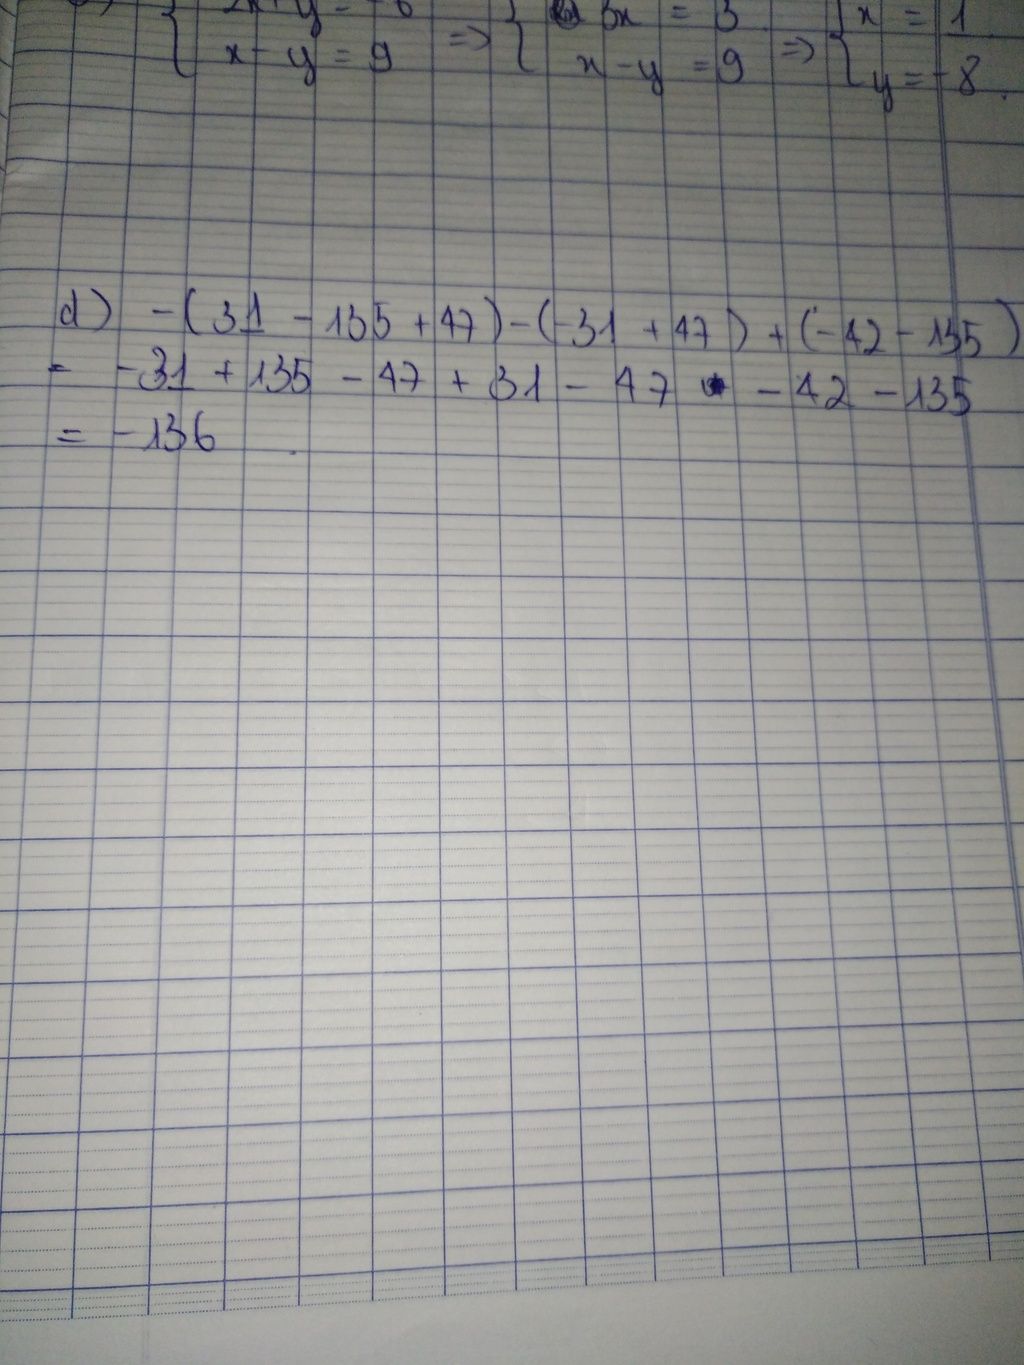 2x+y = -6
{ x - y = 9 => { 3x = 3 => { x = 1
x - y = 9 y = -8.
d) -(31 - 135 + 47) - (-31 + 47) + (-42 - 135)
= -31 + 135 - 47 + 31 - 47 - 42 - 135
= -136